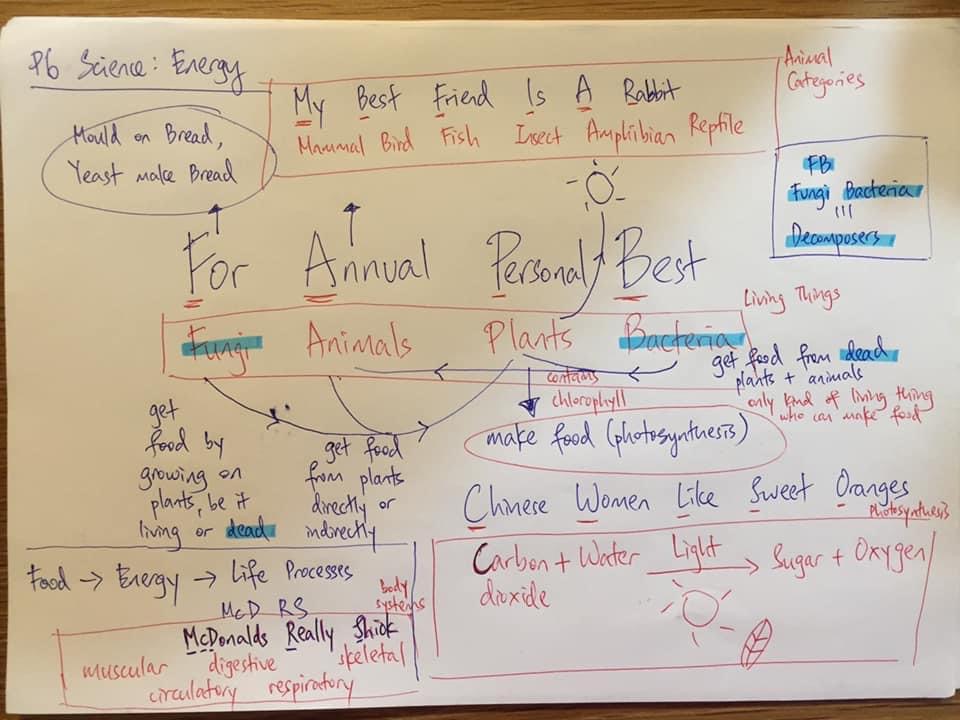 P6 Science: Energy
Animal
Categories
My Best Friend Is A Rabbit
Mammal Bird Fish Insect Amphibian Reptile
Mould on Bread,
Yeast make Bread
FB
Fungi Bacteria
Decomposers
For Annual Personal Best
Living Things
Fungi Animals Plants Bacteria
get food from dead
plants + animals
only kind of living thing
who can make food
contains
chlorophyll
make food (photosynthesis)
get
food by
growing on
plants, be it
living or dead
get food
from plants
directly or
indirectly
Chinese Women Like Sweet Oranges
photosynthesis
Carbon + Water Light Sugar + Oxygen
dioxide
Food → Energy → Life Processes
body
systems
McD RS
McDonalds Really Shiok
muscular digestive skeletal
circulatory respiratory